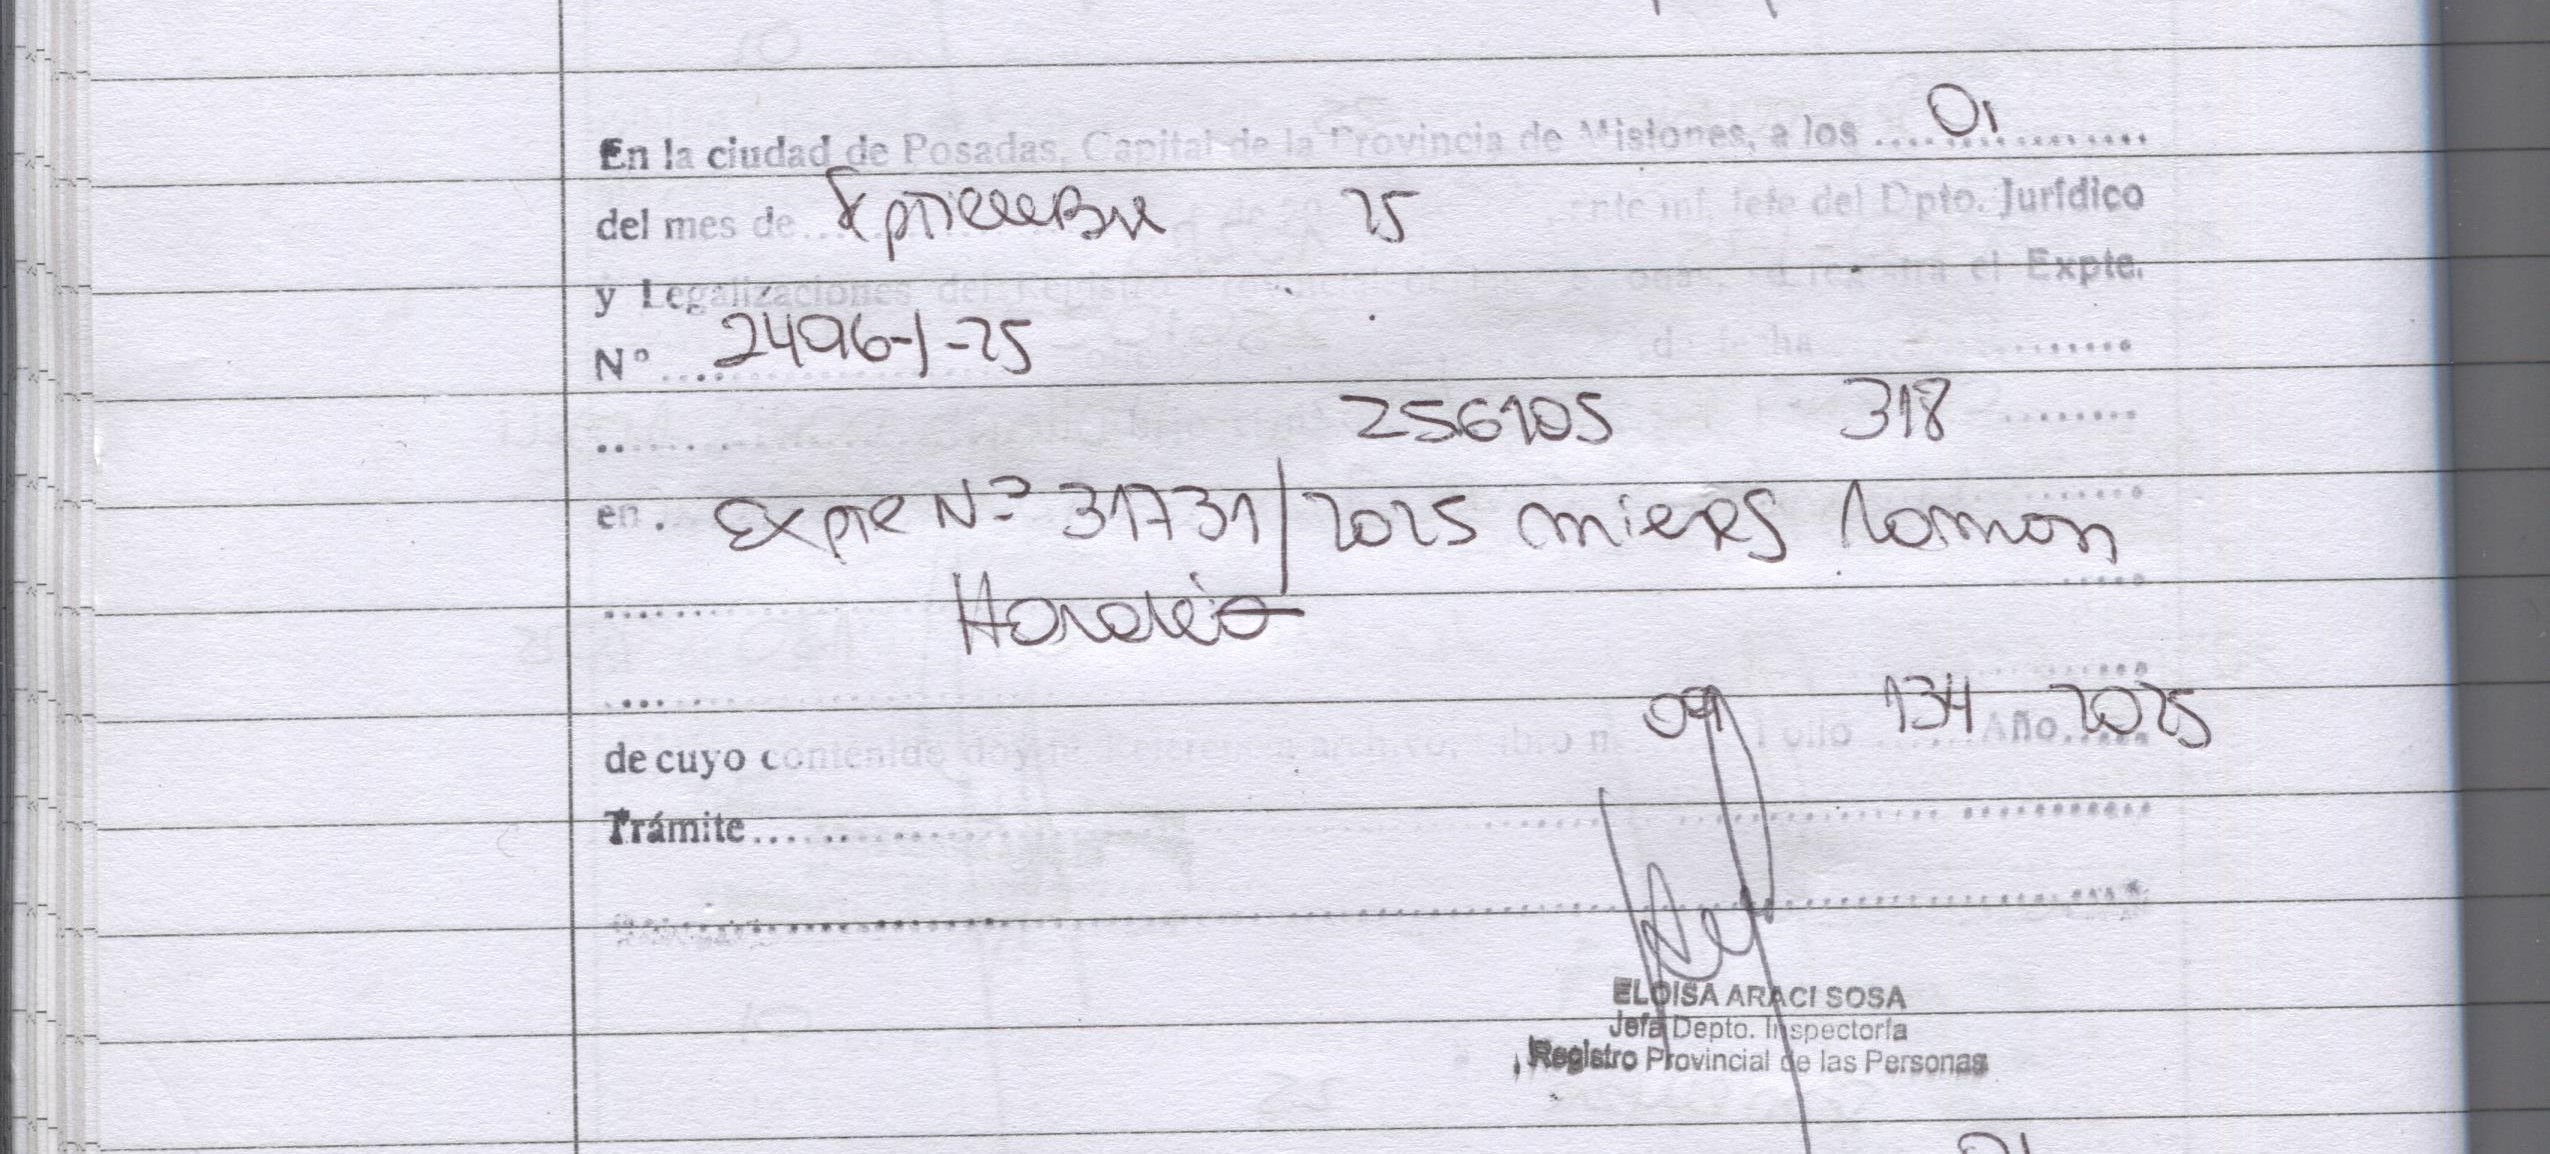 En la ciudad de Posadas, Capital de la Provincia de Misiones, a los 01
del mes de Septiembre 25 Jefe del Dpto. Jurídico
y Legalizaciones del Registro el Expte.
Nº 2496-1-25 de fecha
256105 318
en. Expte Nº 31731/2025 miers Ramon
Horacio
09 134 2025
de cuyo contenido doy fe Folio Año
Trámite
ELOISA ARACI SOSA
Jefa Depto. Inspectoría
Registro Provincial de las Personas